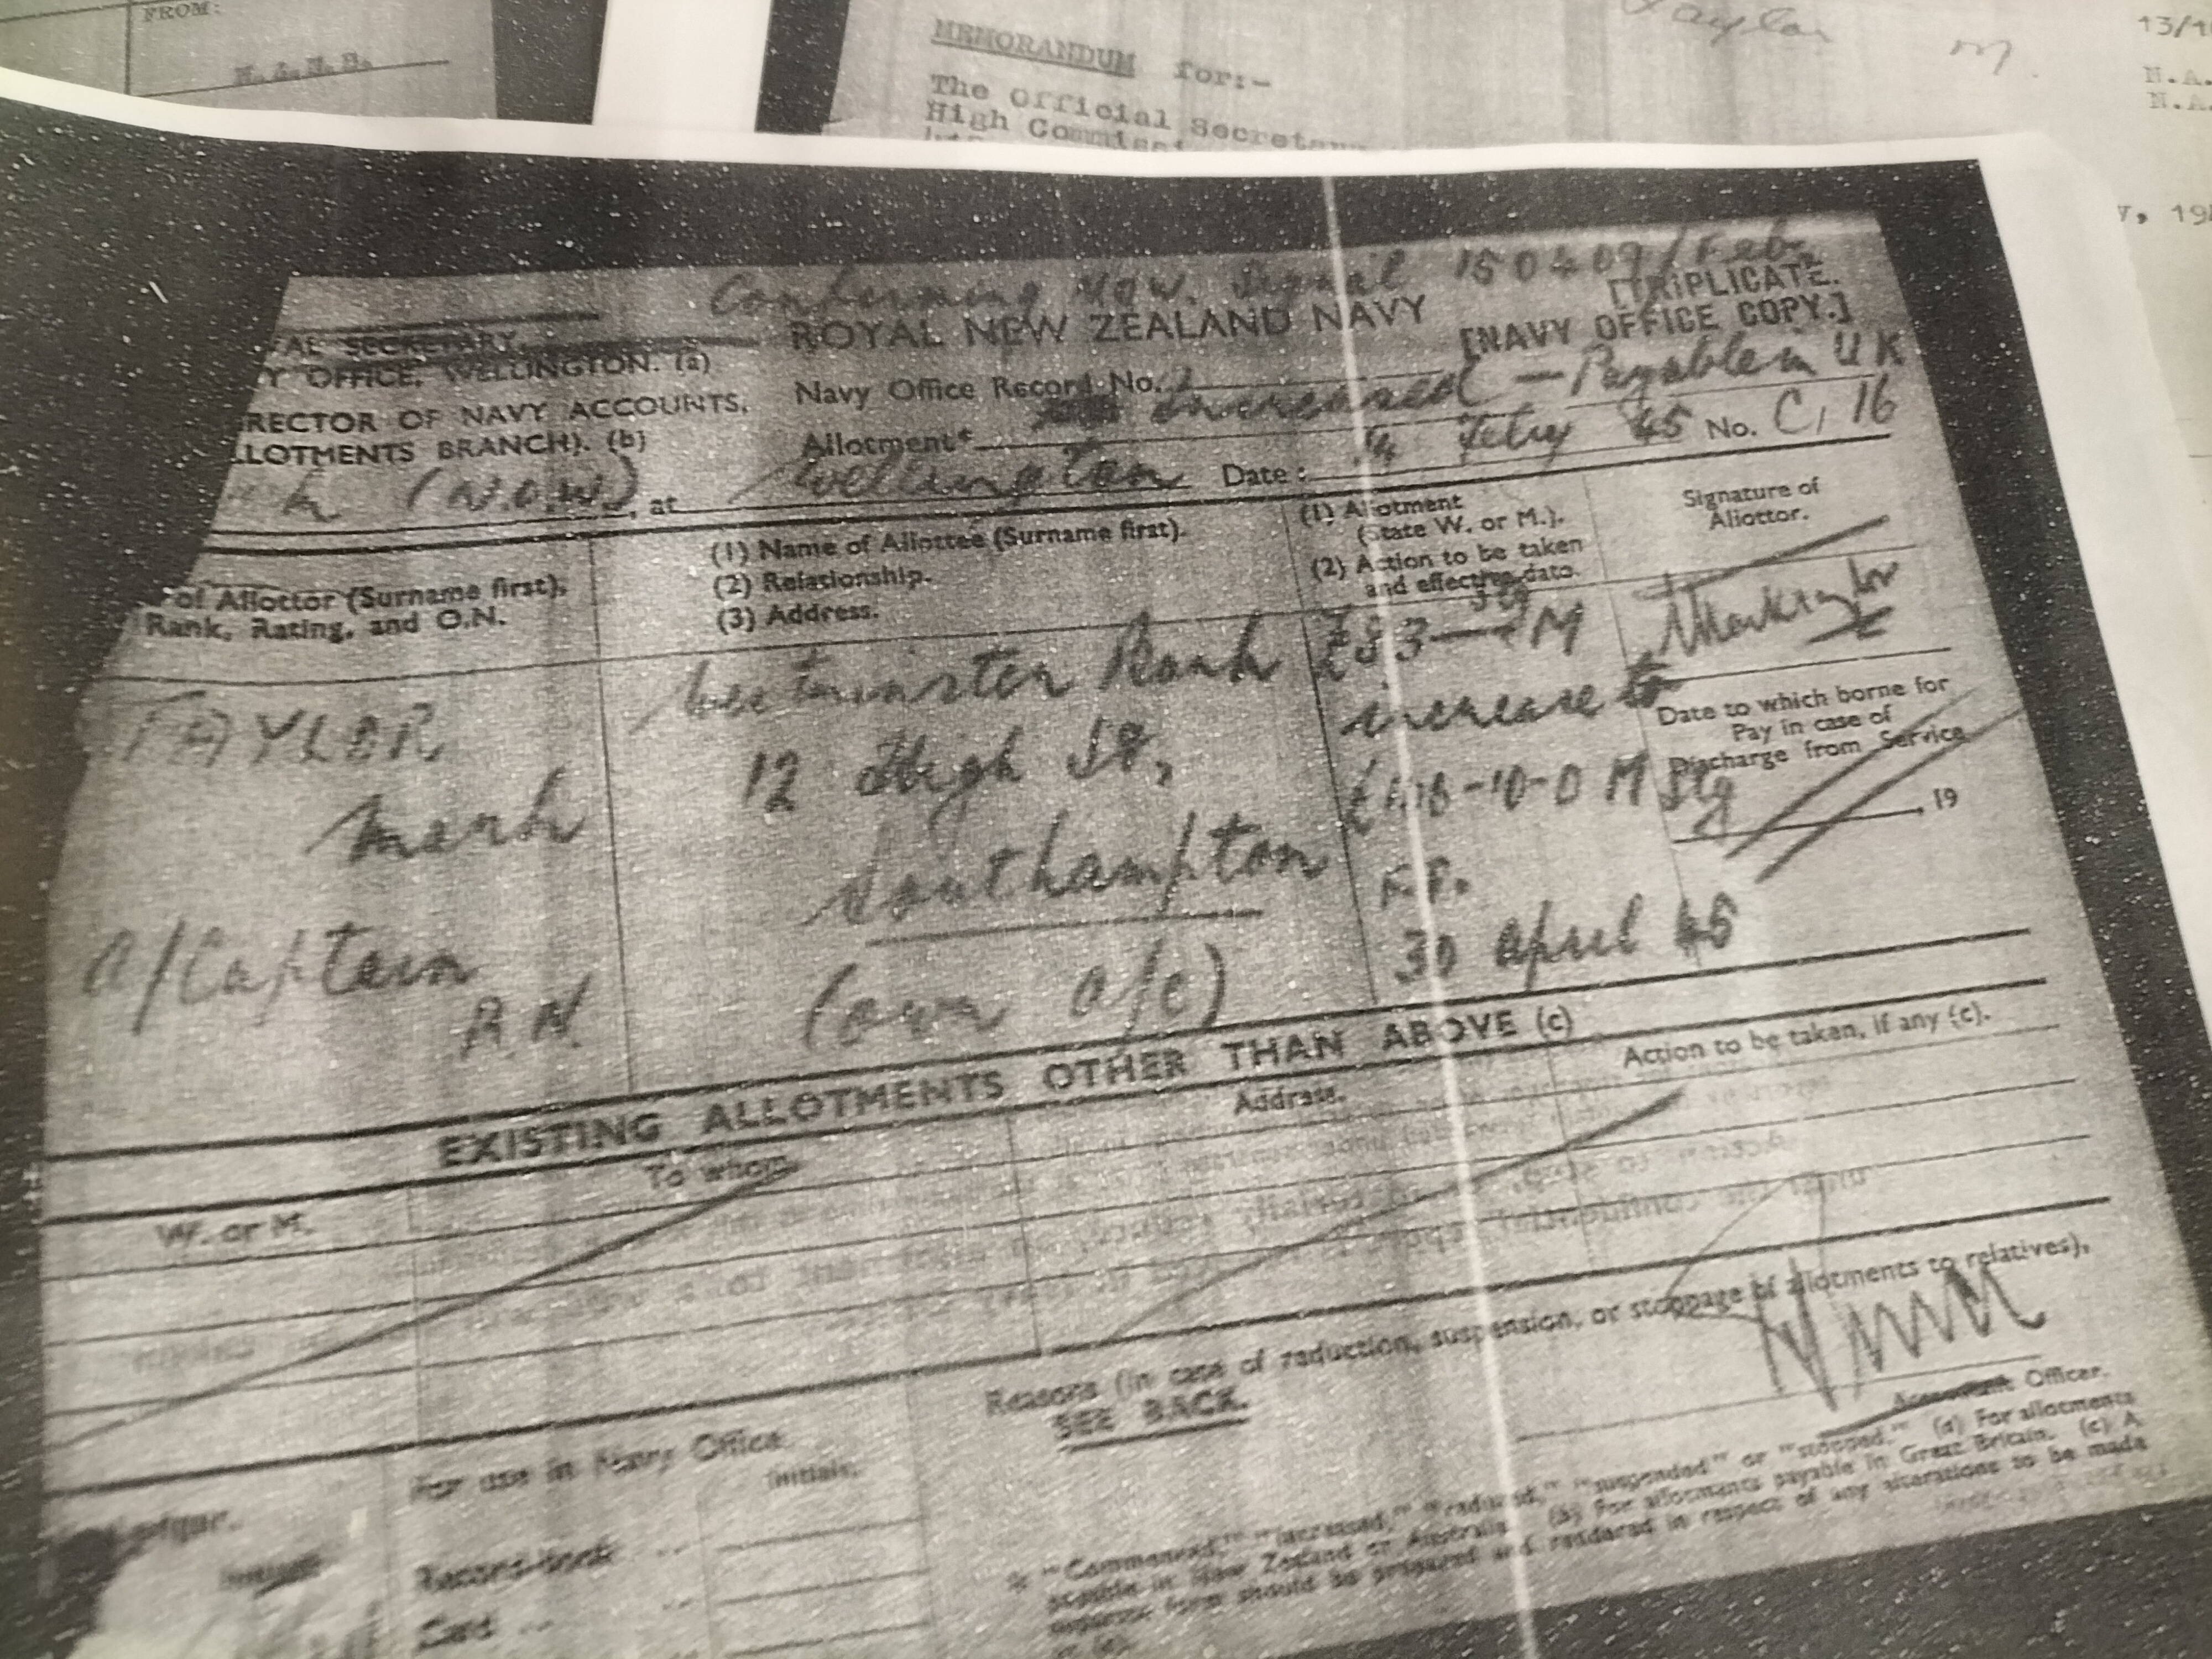 FROM:
MEMORANDUM for:-
The Official Secretary
High Commiss
Taylor M.
13/1
N.A.
N.A.
, 19
Confirming Signal 150409/Feb.
ROYAL NEW ZEALAND NAVY
[TRIPLICATE.
[NAVY OFFICE COPY.]
AL SECRETARY,
Y OFFICE, WELLINGTON. (a)
RECTOR OF NAVY ACCOUNTS,
LLOTMENTS BRANCH). (b)
Navy Office Record No.
Allotment* increased - Payable in UK
(N.O.W), at Wellington Date: Febry 45 No. C, 16
of Allottor (Surname first),
Rank, Rating, and O.N.
(1) Name of Allottee (Surname first).
(2) Relationship.
(3) Address.
(1) Allotment
(State W. or M.).
(2) Action to be taken
and effective date.
Signature of
Allottor.
TAYLOR
Mark
A/Captain
R.N.
Westminster Bank
12 High St,
Southampton
(own a/c)
£83 M
increase to
-10-0 M Stg
F.P.
30 April 45
Date to which borne for
Pay in case of
Discharge from Service
, 19
EXISTING ALLOTMENTS OTHER THAN ABOVE (c)
W. or M.
To whom.
Address.
Action to be taken, if any (c).
Reasons (in case of reduction, suspension, or stoppage of allotments to relatives),
SEE BACK.
Accountant Officer.
For use in Navy Office.
Initials.
Ledger.
Record-book ..
Card ..
* "Commenced," "increased," "reduced," "suspended" or "stopped." (a) For allotments
payable in New Zealand or Australia. (b) For allotments payable in Great Britain. (c) A
separate form should be prepared and rendered in respect of any alterations to be made